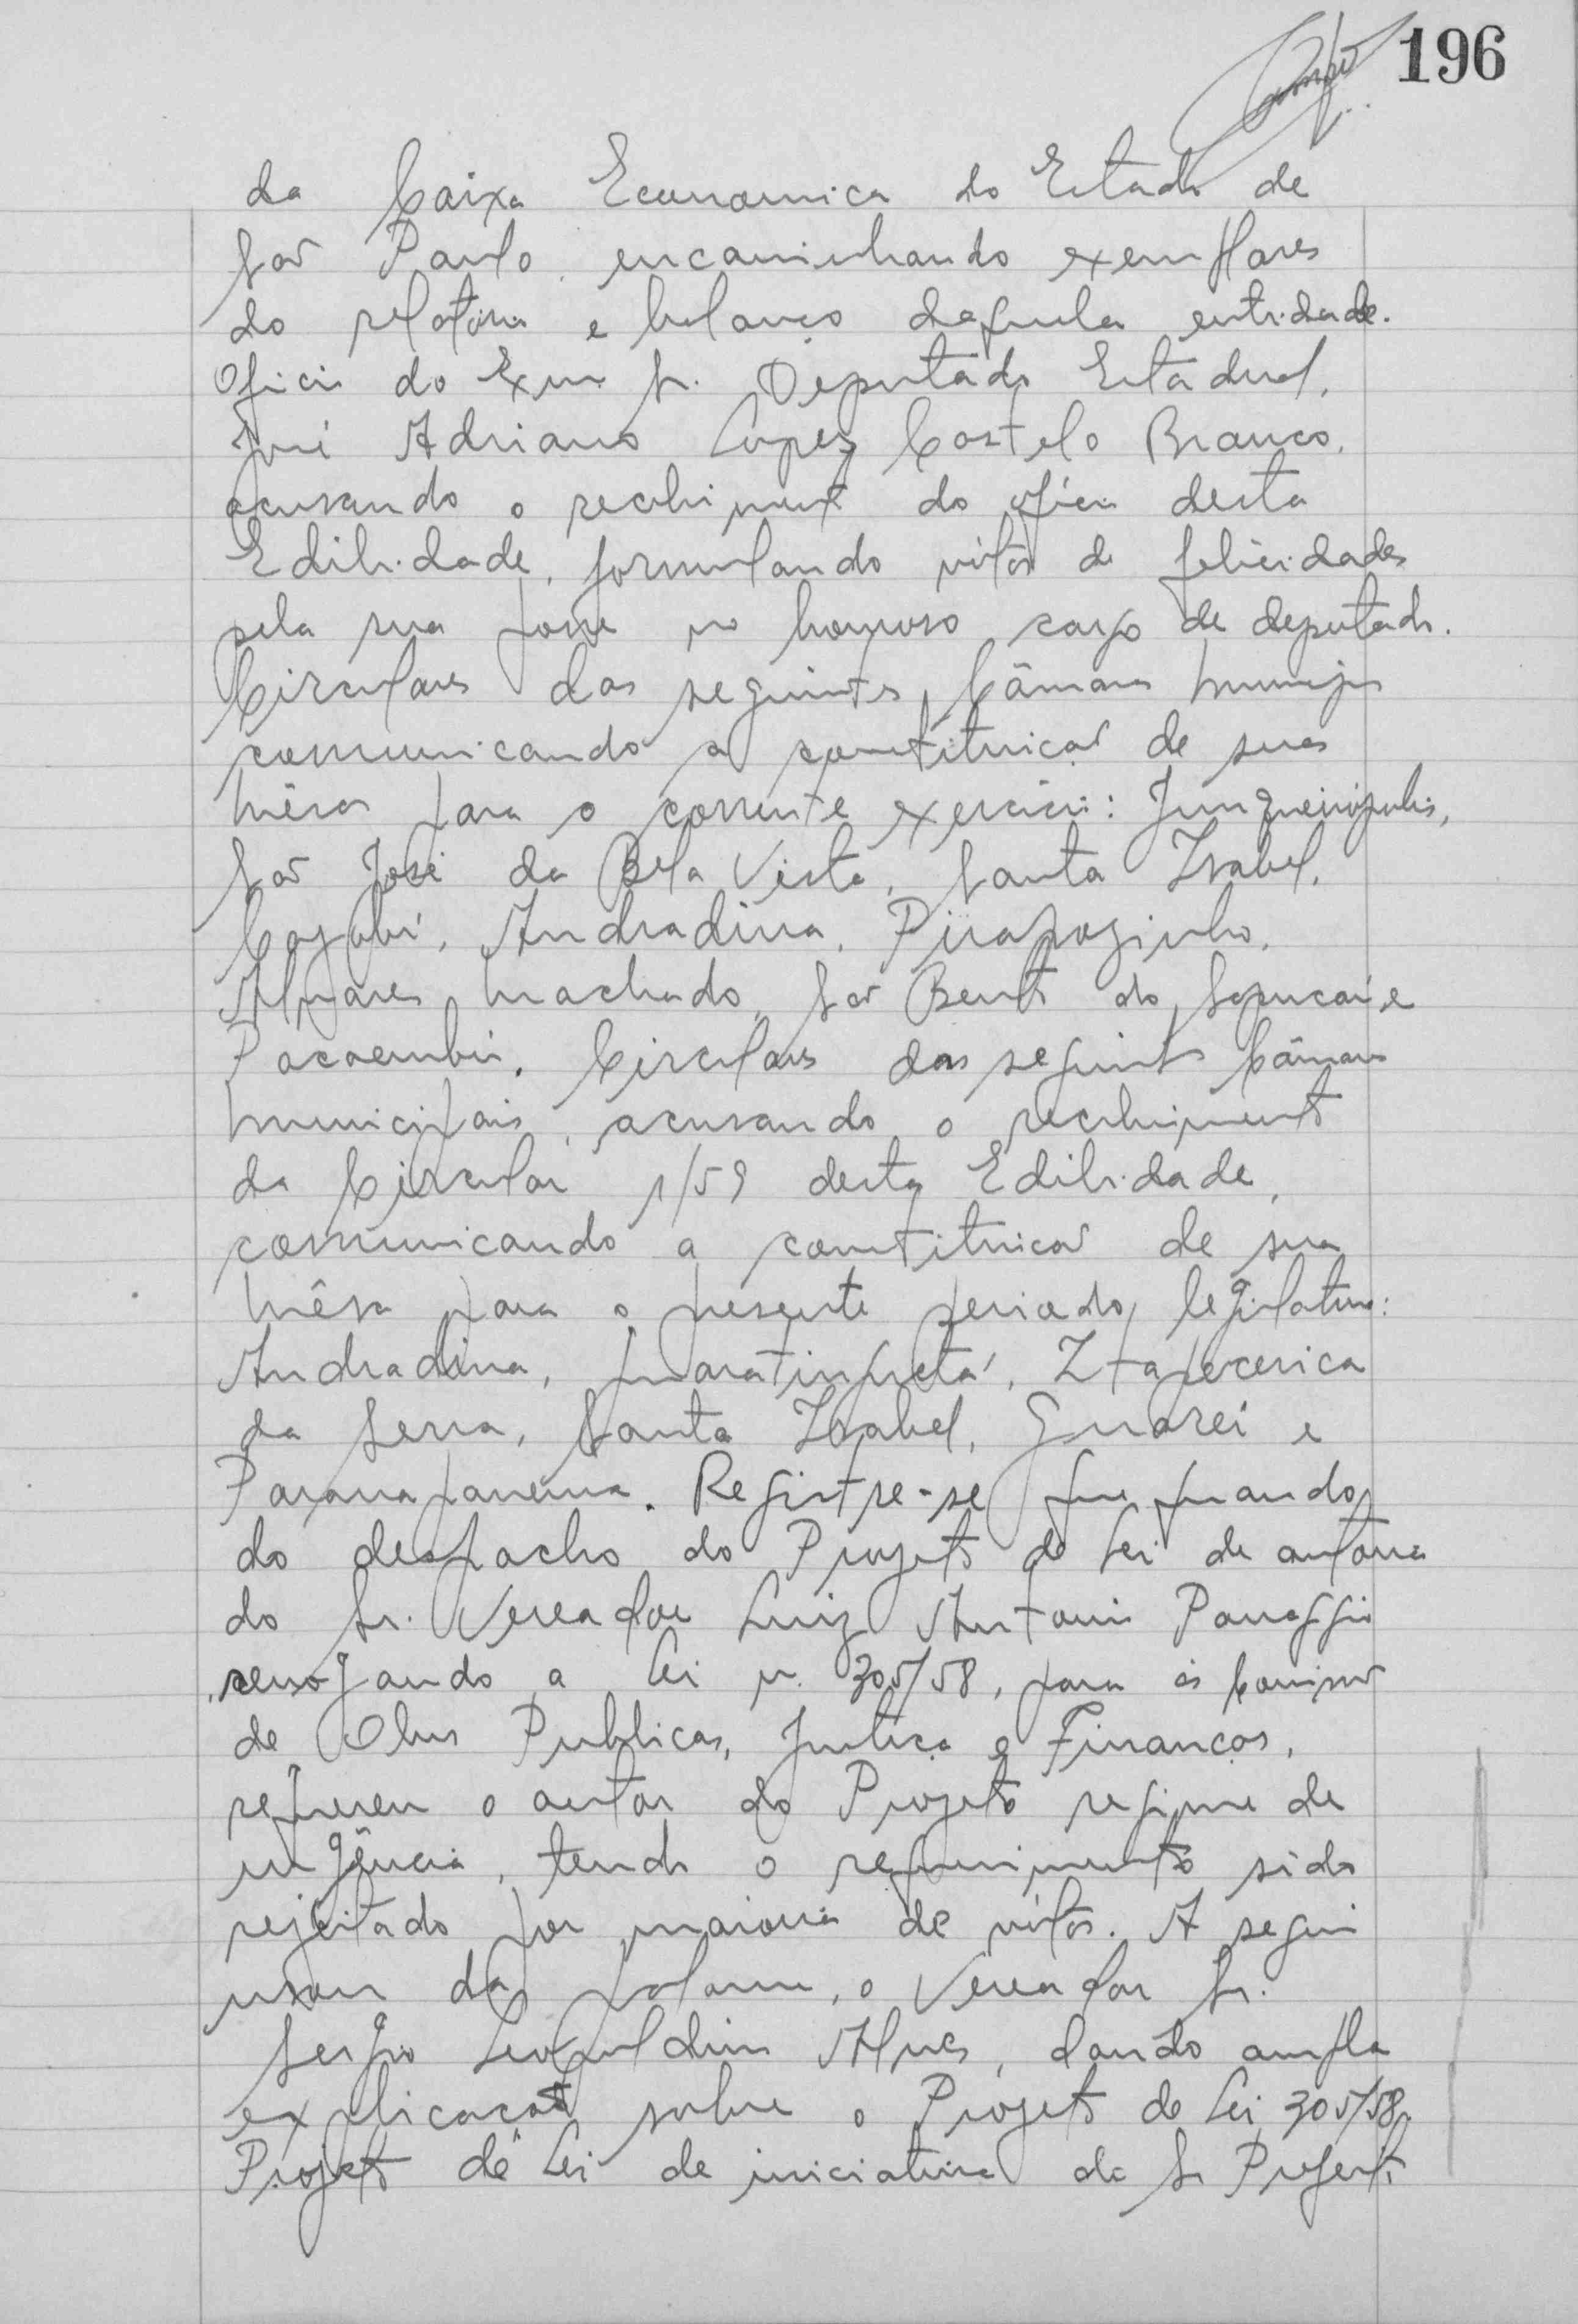 196
da Caixa Economica do Estado de
São Paulo, encaminhando exemplares
do relatório e balanço daquela entidade.
Oficio do Exmo Sr. Deputado Estadual,
José Adriano Lopes Castelo Branco,
acusando o recebimento do ofício desta
Edilidade, formulando vótos de felicidades
pela sua posse no honroso cargo de deputado.
Circulares das seguintes Câmaras Municipais
comunicando a constituição de suas
Mêsas para o corrente exercício: Junqueirópolis,
São José da Bela Vista, Santa Izabel,
Cajobí, Andradina, Pirapozinho,
Alvares Machado, São Bento do Sapucaí e
Pacaembú. Circulares das seguintes Câmaras
Municipais, acusando o recebimento
da Circular 1/59 desta Edilidade,
comunicando a constituição de sua
Mêsa para o presente periodo legislativo:
Andradina, Guaratinguetá, Itapecerica
da Serra, Santa Izabel, Guareí e
Paranapanema. Registre-se que quando
do despacho do Projeto de Lei de autoria
do Sr. Vereador Luiz Antonio
revogando a Lei n. 305/58, para as Comissões
de Obras Publicas, Justiça e Finanças,
requereu o autor do Projeto regime de
urgência, tendo o requerimento sido
rejeitado por maioria de vótos. A seguir
usou da palavra, o Vereador Sr.
Sergio Leopoldino Alves, dando ampla
explicação sobre o Projeto de Lei 305/58,
Projeto de Lei de iniciativa do Sr Prefeito